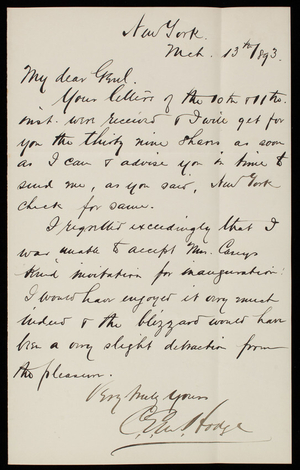 New York.
Mch. 13th/893.
My dear Genl.
Your letters of the 10th & 11th.
inst. were received & I will get for
you the thirty nine shares as soon
as I can & advise you in time to
send me, as you said, New York
check for same.
I regretted exceedingly that I
was unable to accept Mrs. Caseys
kind invitation for inauguration.
I would have enjoyed it very much
indeed & the blizzard would have
been a very slight detraction from
the pleasure.
Very truly yours
Hodge